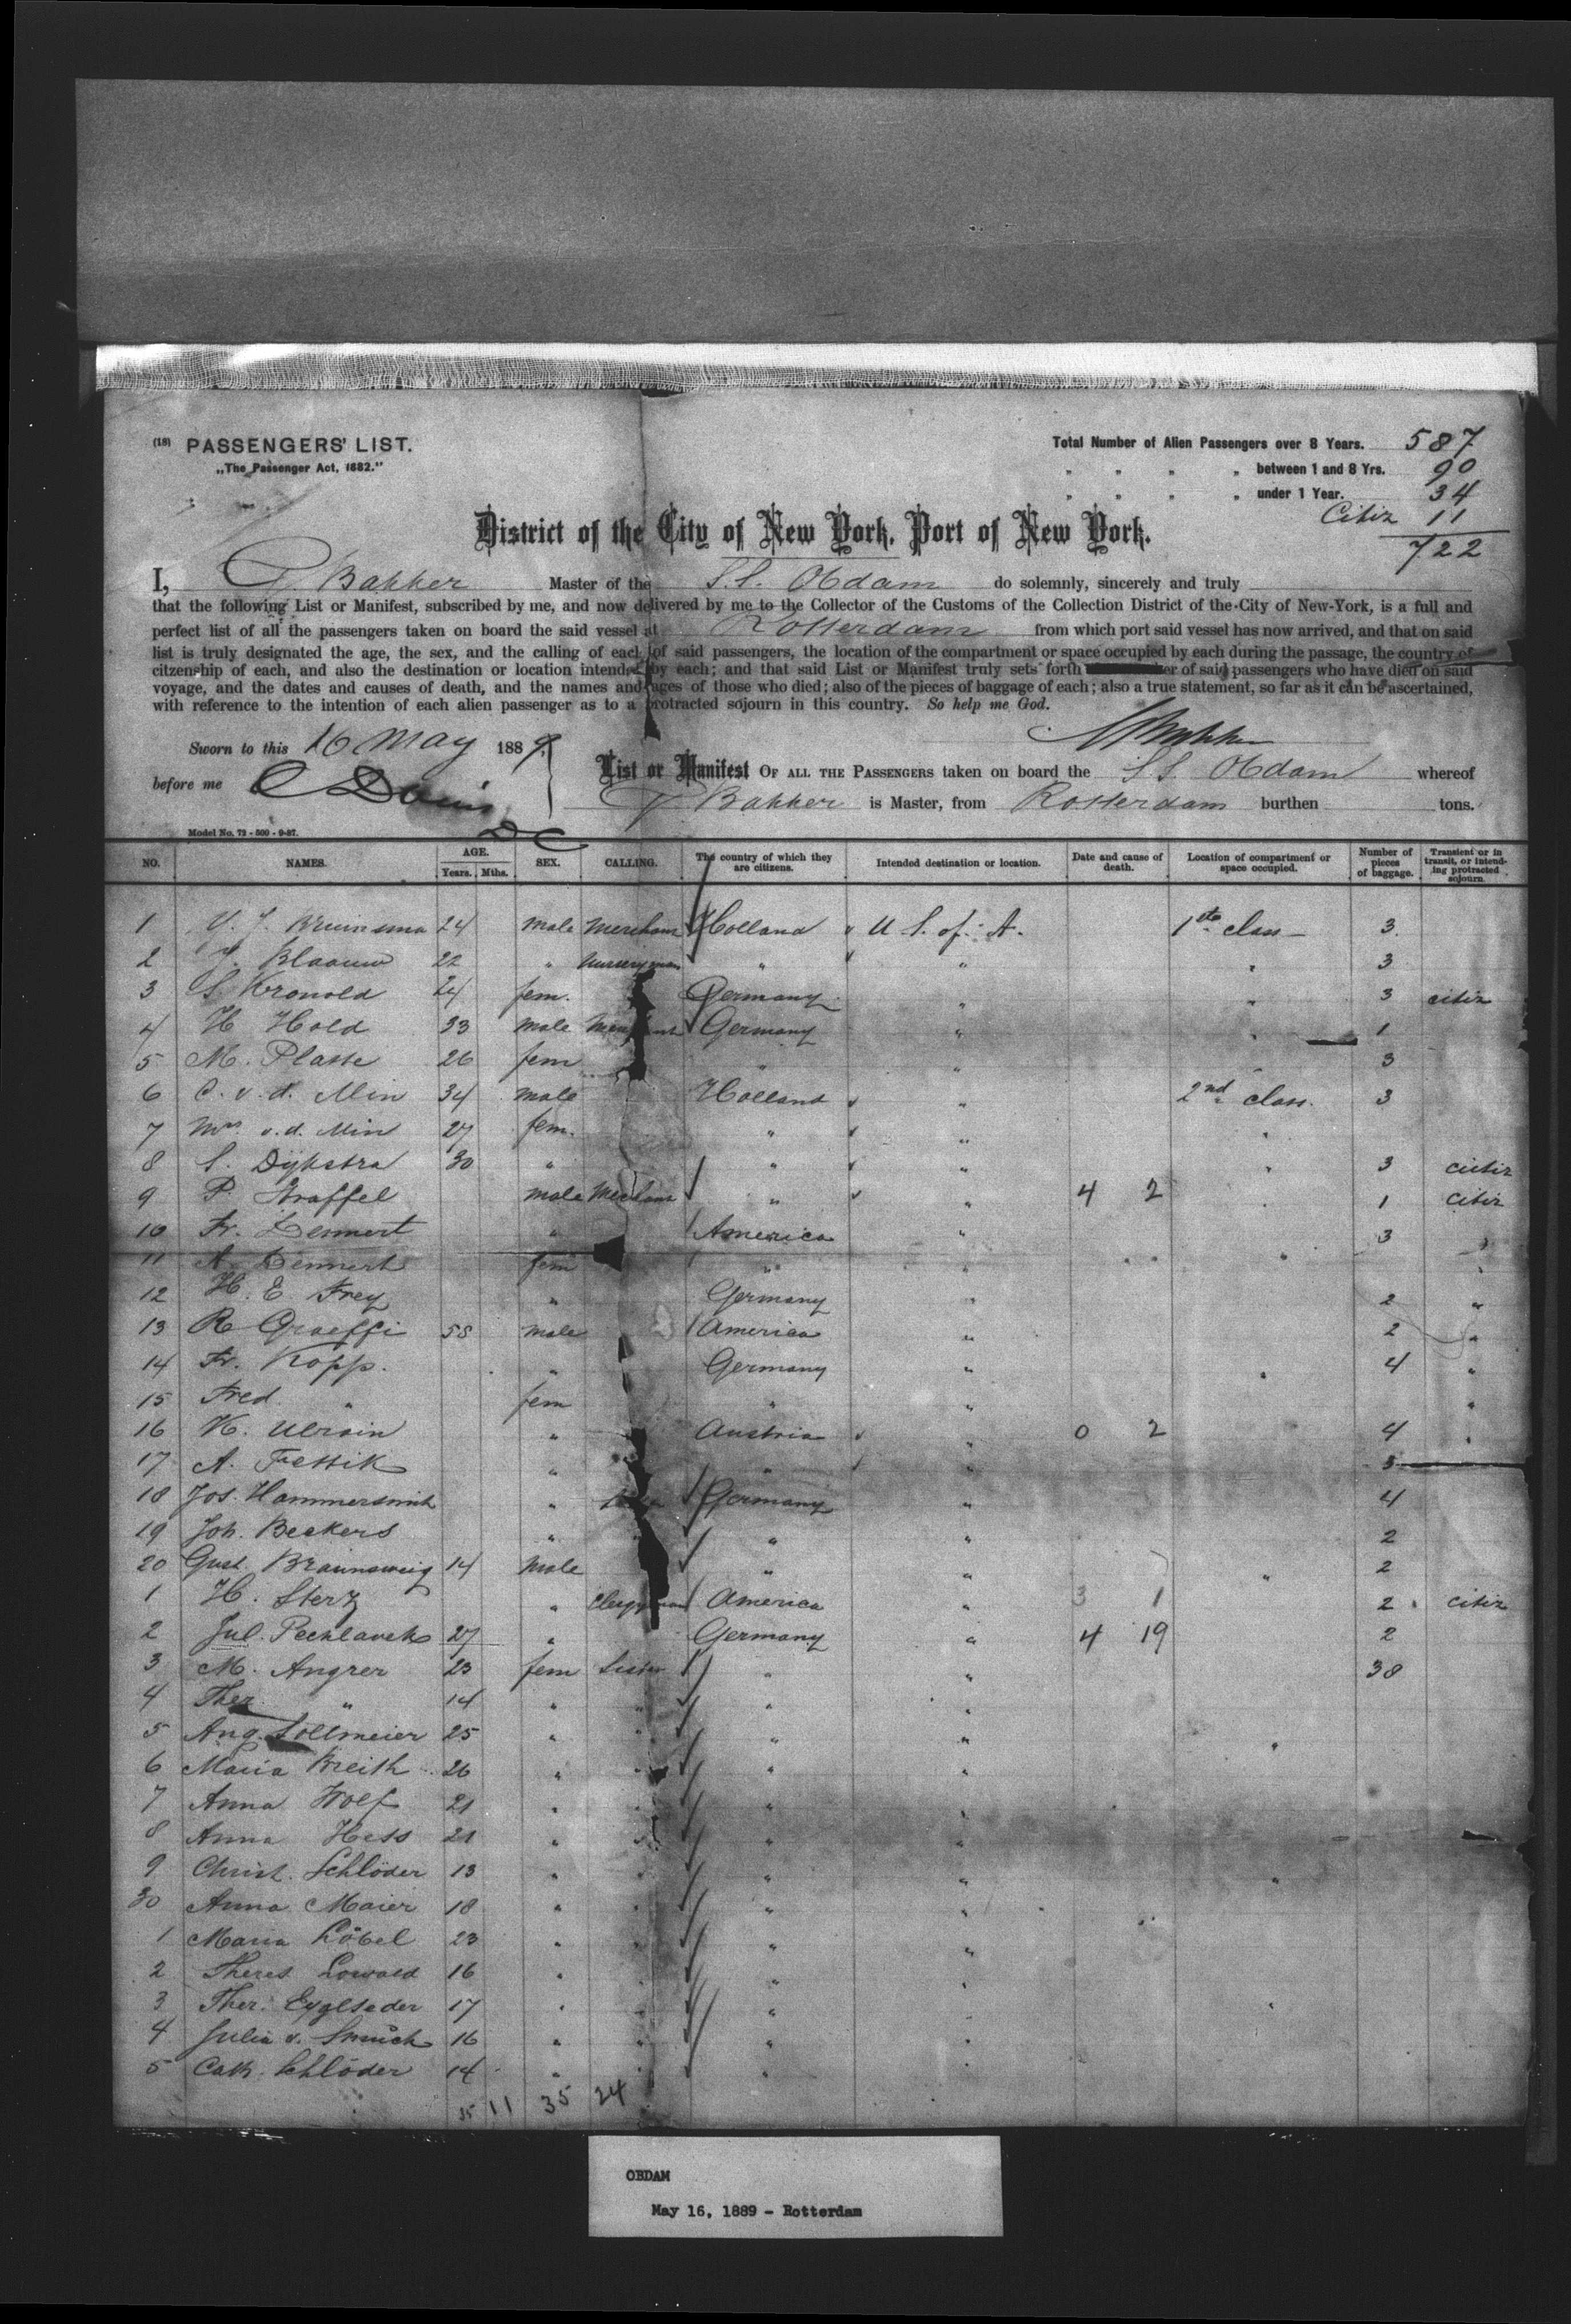 (18) PASSENGERS' LIST.
„The Passenger Act, 1882."
Total Number of Alien Passengers over 8 Years. 587
„ „ „ „ between 1 and 8 Yrs. 90
„ „ „ „ under 1 Year. 34
Citiz 11
722
District of the City of New York, Port of New York.
I, Bakker Master of the S.S. Obdam do solemnly, sincerely and truly
that the following List or Manifest, subscribed by me, and now delivered by me to the Collector of the Customs of the Collection District of the City of New-York, is a full and
perfect list of all the passengers taken on board the said vessel at Rotterdam from which port said vessel has now arrived, and that on said
list is truly designated the age, the sex, and the calling of each of said passengers, the location of the compartment or space occupied by each during the passage, the country of
citzenship of each, and also the destination or location intended by each; and that said List or Manifest truly sets forth er of said passengers who have died on said
voyage, and the dates and causes of death, and the names and ages of those who died; also of the pieces of baggage of each; also a true statement, so far as it can be ascertained,
with reference to the intention of each alien passenger as to a protracted sojourn in this country. So help me God.
Sworn to this 16 May 1889,
before me C Davis
DC
List or Manifest OF ALL THE PASSENGERS taken on board the S.S. Obdam whereof
Bakker is Master, from Rotterdam burthen tons.
Model No. 72 - 500 - 9-87.
NO. NAMES. AGE. Years. Mths. SEX. CALLING. The country of which they are citizens. Intended destination or location. Date and cause of death. Location of compartment or space occupied. Number of pieces of baggage. Transient or in transit, or intending protracted sojourn.
1 Bruinsma 24 male Merchant Holland U S. of A. 1ste class 3
2 Blaauw 22 " nurseryman " " " 3
3 S. Kronold 24 fem. Germany " " 3 citiz
4 H Hold 33 male Germany " " 1
5 M. Plasse 26 fem " " " 3
6 C. v. d. Min 34 male Holland " 2nd class. 3
7 Mrs v. d. Min 27 fem. " " "
8 S. Dykstra 30 " " " " 3 citiz
9 P. Straffel male " " 4 2 " 1 citiz
10 Fr. Dennert " America " 3 "
11 A Dennert fem " " " "
12 H. E. Frey " Germany " 2 "
13 R Graeffi 58 male America " 2 "
14 Fr. Kopp. " Germany " " 4 "
15 Fred. " fem " " "
16 K. Ulrain " Austria " 0 2 4 "
17 A. Fettik " " " 3
18 Jos. Hammersmith " Germany " 4
19 Joh. Beckers " " " 2
20 Gust. Braunsweig 14 male " " " 2
1 H. Sterz " Clergyman America " 3 1 2 citiz
2 Jul. Pechlavek 27 " Germany " 4 19 2
3 M. Angrer 23 fem Sister " " 38
4 Ther. " 14 " " " "
5 Aug. Sollmeier 25 " " " "
6 Maria Breith 26 " " " "
7 Anna Wolf 21 " " " "
8 Anna Hess 21 " " " "
9 Christ. Schlöder 13 " " " " "
30 Anna Maier 18 " " " "
1 Maria Löbel 23 " " " "
2 Theres Lowald 16 " " "
3 Ther. Eyglseder 17 " " " "
4 Julia v. 16 " " " "
5 Cath. Schlöder 14 " " "
35 11 35 24
OBDAM
May 16, 1889 - Rotterdam